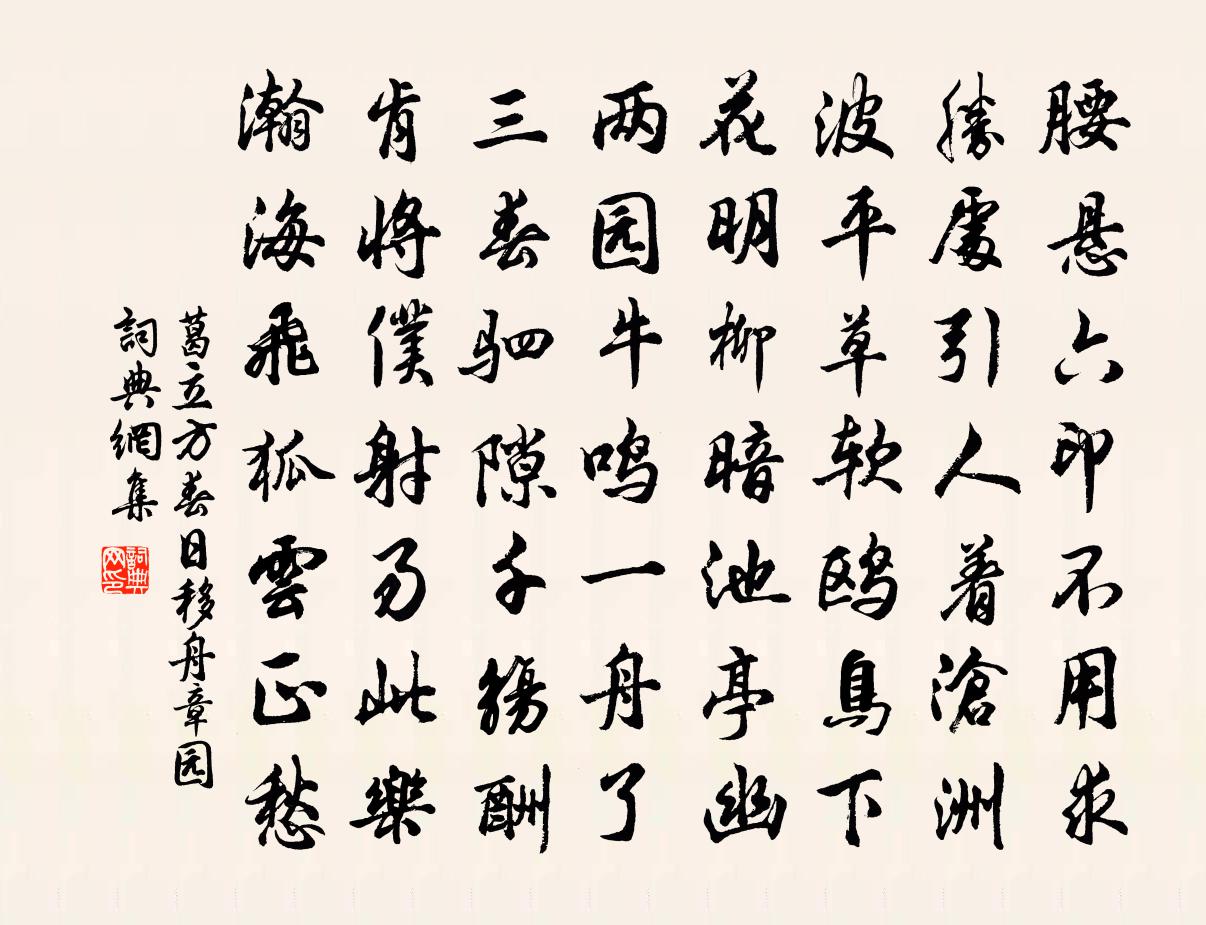 腰悬六印不用求
勝處引人着滄洲
波平草软鸥鳥下
花明柳暗池亭幽
两园牛鸣一舟了
三春驷隙千觴酬
肯將僕射易此樂
瀚海飛狐雲正愁
葛立方春日移舟章园
詞典網集
詞典网印